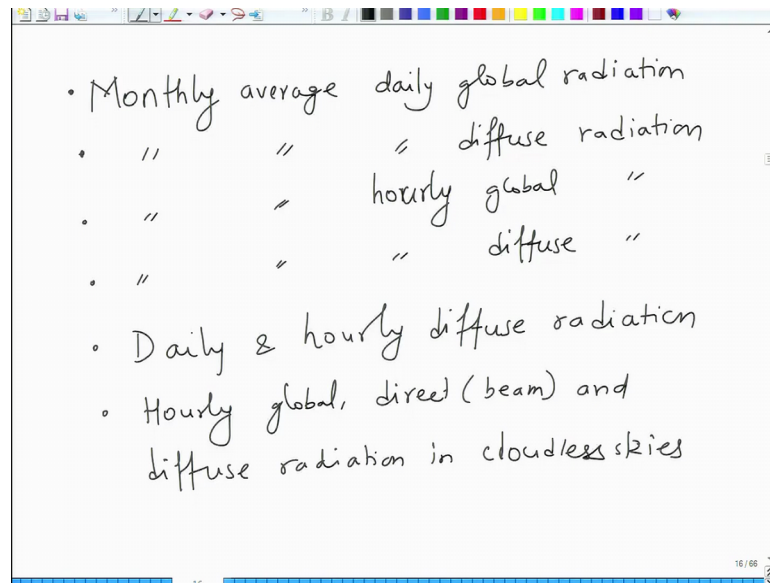 • Monthly average daily global radiation
• " " " diffuse radiation
• " " hourly global "
• " " " diffuse "
• Daily & hourly diffuse radiation
• Hourly global, direct (beam) and
diffuse radiation in cloudless skies
16 / 66